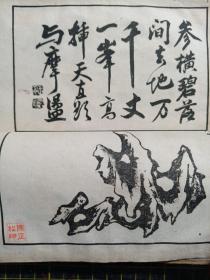 参横碧落
间去地万
千丈
一峯高
插天直欲
与摩盪